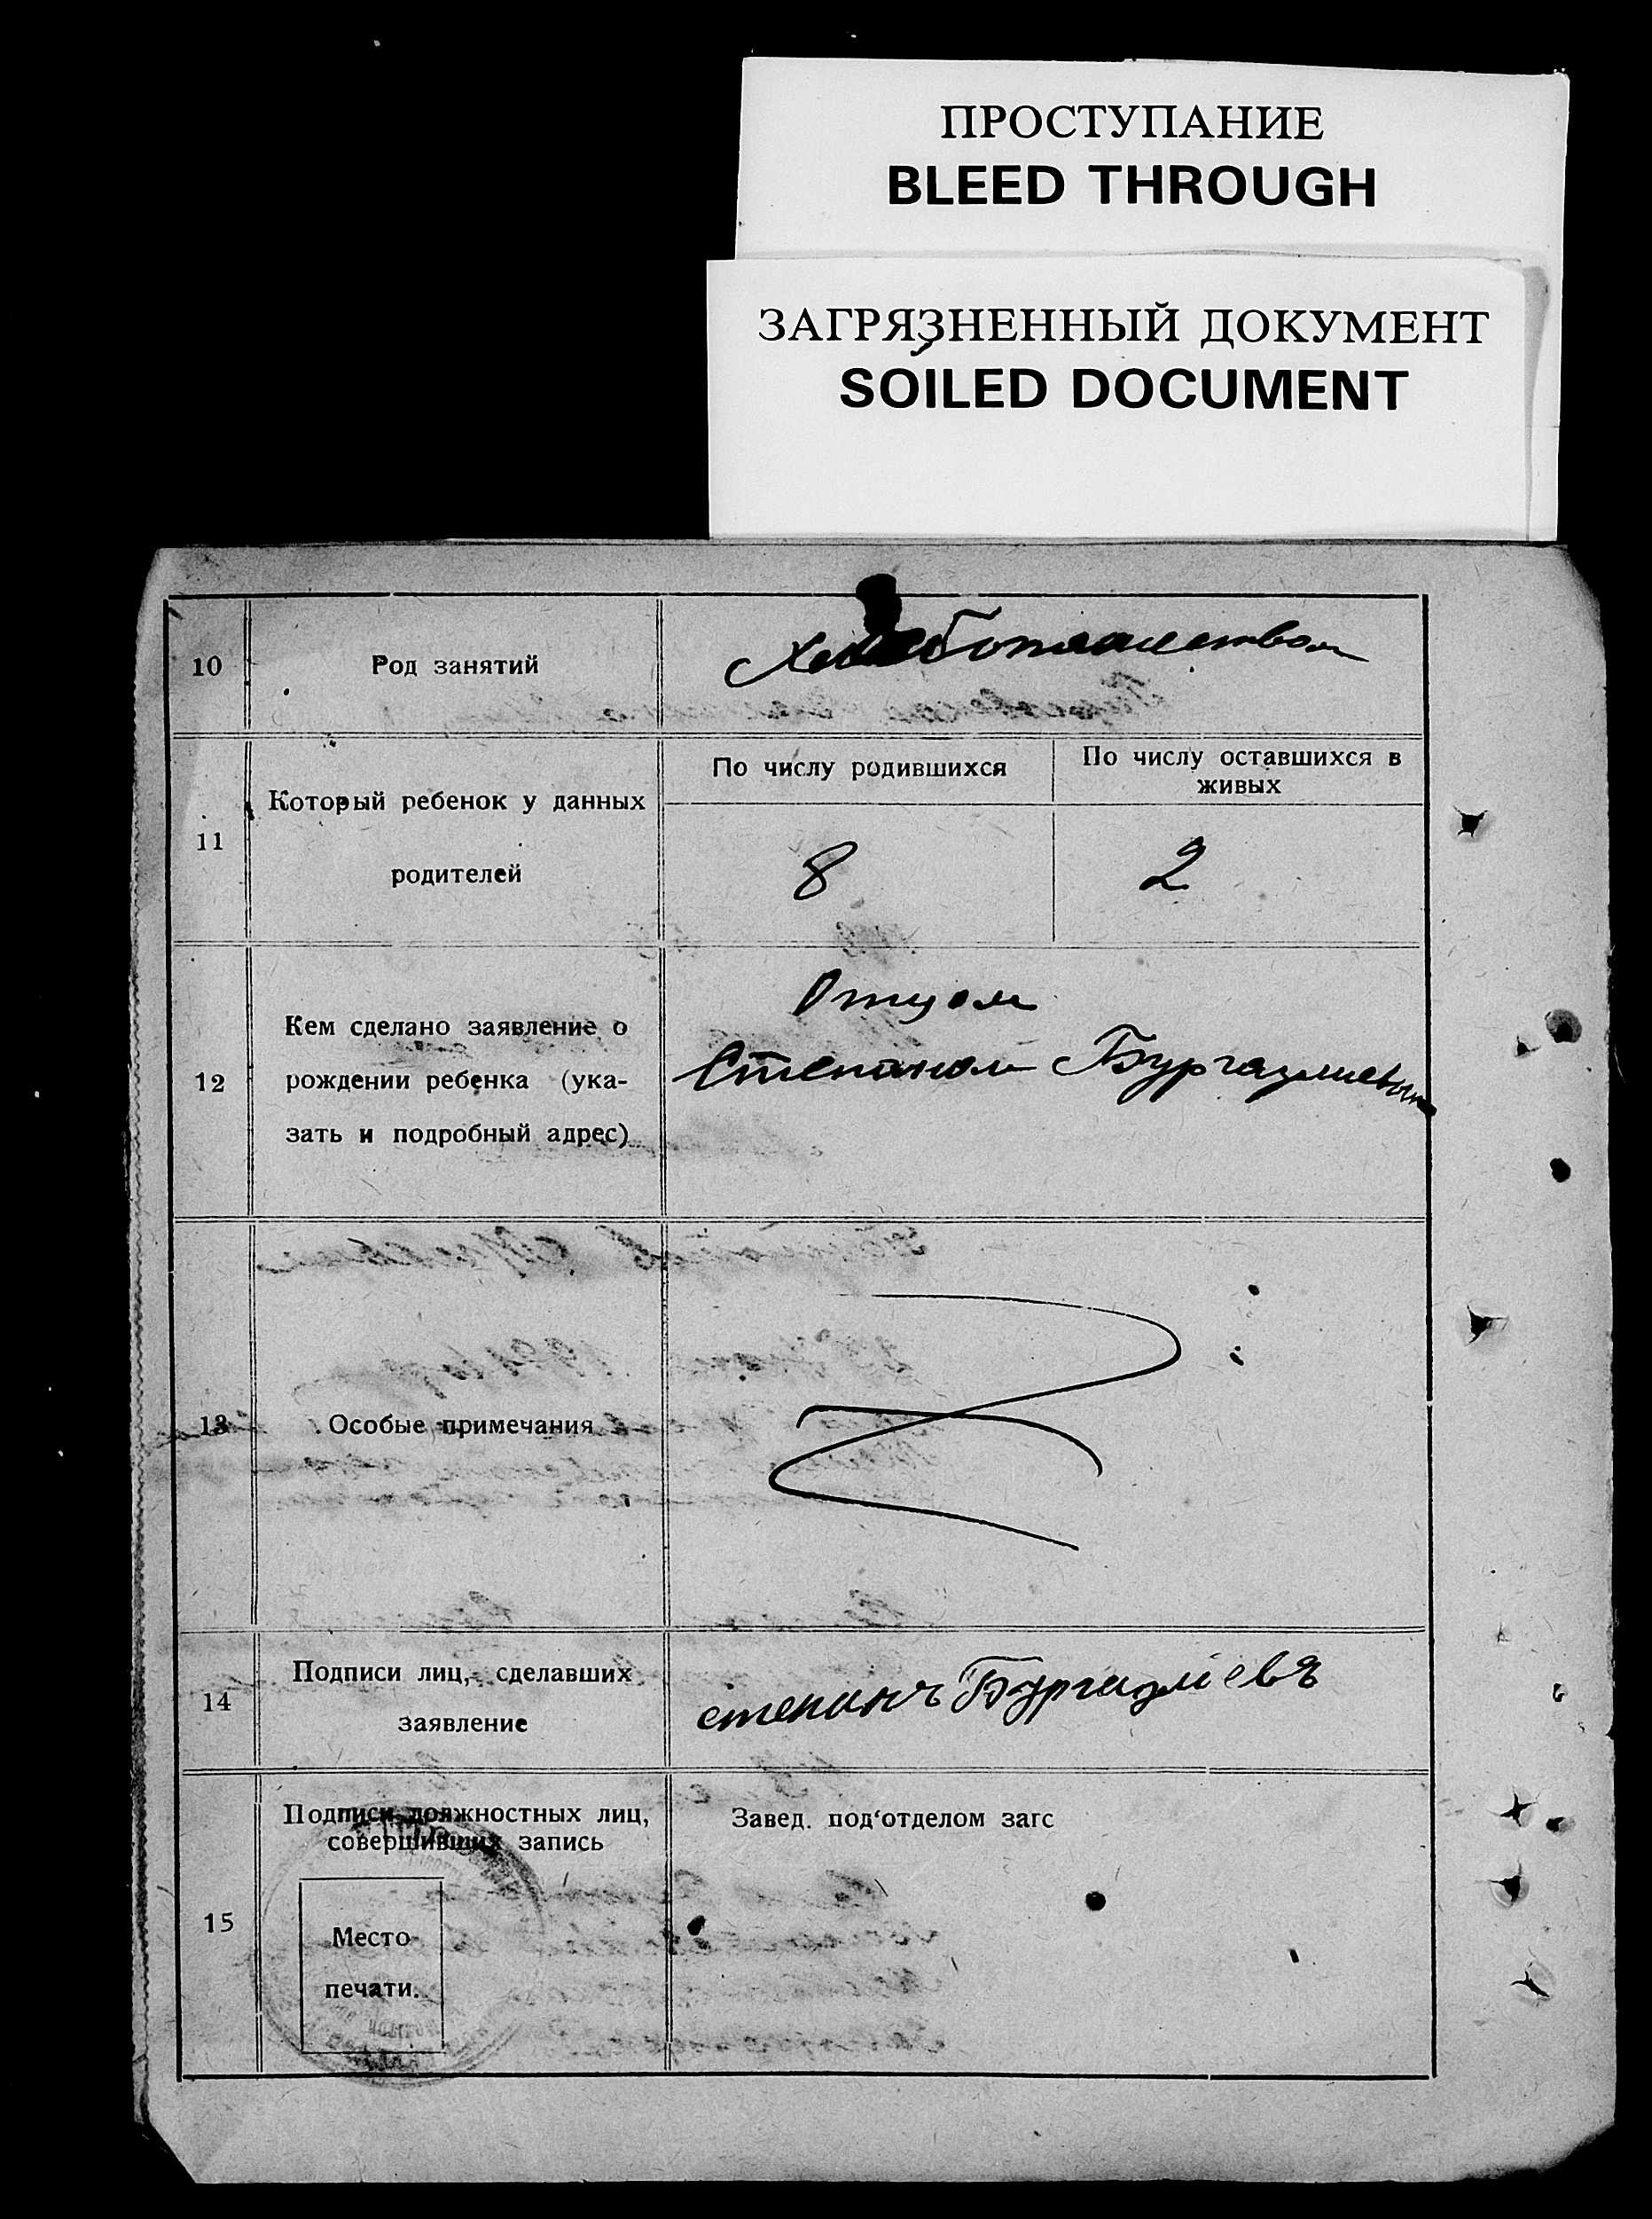 ПРОСТУПАНИЕ
BLEED THROUGH
ЗАГРЯЗНЕННЫЙ ДОКУМЕНТ
SOILED DOCUMENT
10
Род занятий
Хлебопашеством
11
Который ребенок у данных
родителей
По числу родившихся
По числу оставшихся в
живых
8
2
12
Кем сделано заявление о
рождении ребенка (ука-
зать и подробный адрес)
Отцом
Степаном Бургазлиевым
13
Особые примечания
14
Подписи лиц, сделавших
заявление
степанъ Бургазлiевъ
15
Подписи должностных лиц,
совершивших запись
Место
печати.
Завед. под‘отделом загс